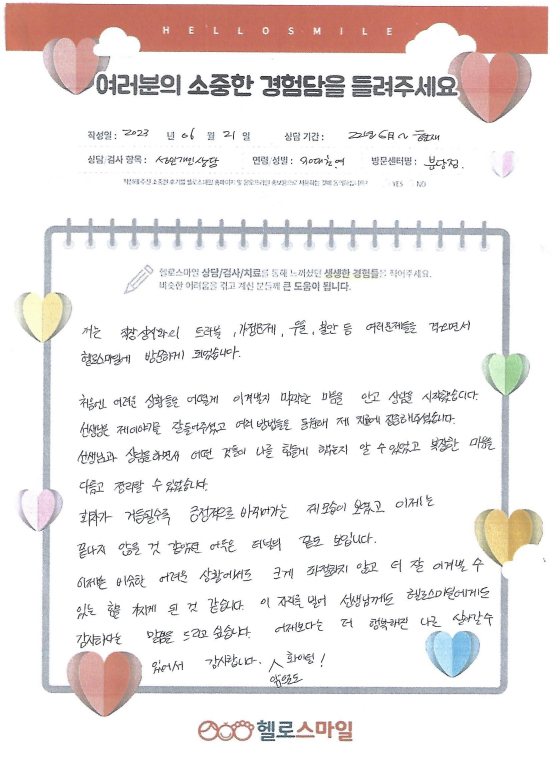 HELLOSMILE
여러분의 소중한 경험담을 들려주세요
작성일 : 2023 년 06 월 21 일 상담 기간 : 22년 6月 ~ 현재
상담, 검사 항목 : 성인개인상담 연령, 성별 : 30대 여 방문센터명 : 분당점
YES NO
헬로스마일 상담/검사/치료를 통해 느끼셨던 생생한 경험들을 적어주세요.
비슷한 어려움을 겪고 계신 분들께 큰 도움이 됩니다.
저는 직장상사와의 트러블, 가정문제, 우울, 불안 등 여러문제들을 겪으면서
헬로스마일에 방문하게 되었습니다.
처음엔 어려운 상황들을 어떻게 이겨낼지 막막한 마음을 안고 상담을 시작했습니다.
선생님은 제이야기를 잘들어주셨고 여러 방법들을 동원해 제 치료에 집중해주셨습니다.
선생님과 상담을하면서 어떤 것들이 나를 힘들게 했는지 알 수 있었고 복잡한 마음을
다듬고 정리할 수 있었습니다.
회차가 거듭될수록 긍정적으로 바뀌어가는 제모습이 보였고 이제는
끝나지 않을 것 같았던 어두운 터널의 끝도 보입니다.
이제는 비슷한 어려운 상황이와도 크게 좌절하지 않고 더 잘 이겨낼 수
있는 힘을 가지게 된 것 같습니다. 이 자리를 빌어 선생님께도 헬로스마일에게도
감사하다는 말씀을 드리고 싶습니다. 어제보다는 더 행복해진 나로 살아갈수
있어서 감사합니다. 앞으로도 화이팅!
헬로스마일